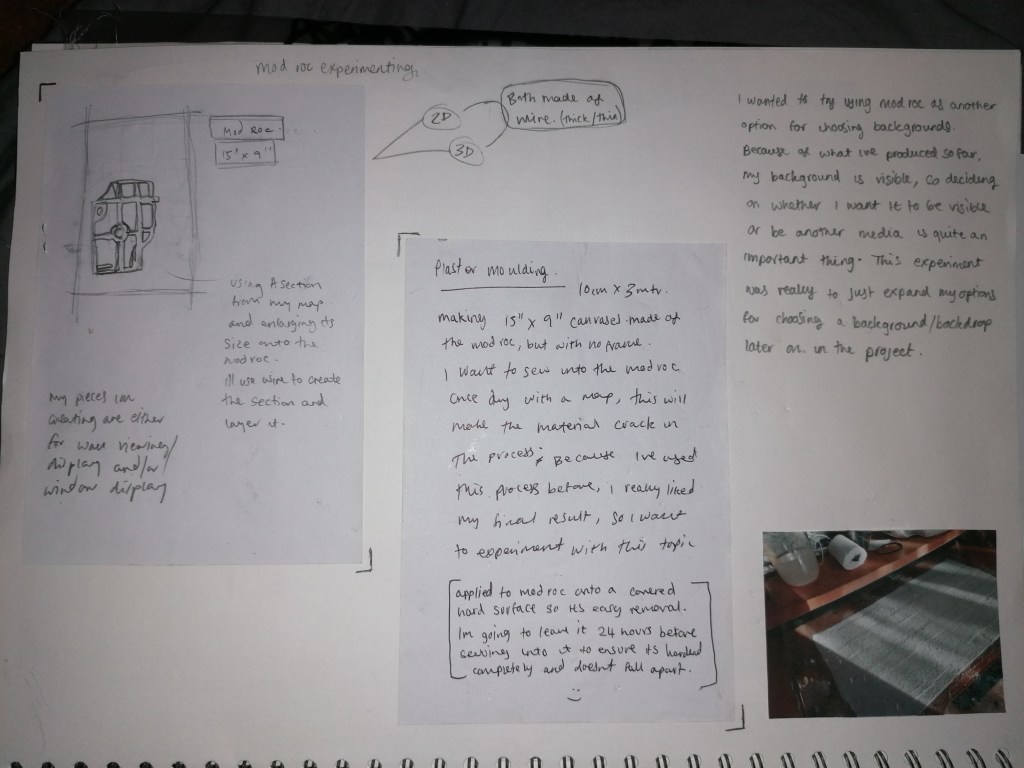 Mod roc experimenting.
Mod roc.
15" x 9"
using A section
from my map
and enlarging its
size onto the
modroc.
ill use wire to create
the section and
layer it.
My pieces im
creating are either
for wall viewing/
display and/or
window display
2D
3D
Both made of
wire. (thick/thin)
Plaster moulding.
10cm x 3mtr.
making 15" x 9" canvases made of
the modroc, but with no frame.
I want to sew into the modroc
once dry with a map, this will
make the material crack in
the process. Because ive used
this process before, I really liked
my final result, so I want
to experiment with this topic
applied to modroc onto a covered
hard surface so its easy removal.
Im going to leave it 24 hours before
sewing into it to ensure its hardend
completely and doesnt fall apart.
I wanted to try using modroc as another
option for choosing backgrounds.
Because of what ive produced so far,
my background is visible, so deciding
on whether I want it to be visible
or be another media is quite an
important thing. This experiment
was really to just expand my options
for choosing a background/backdrop
later on in the project.